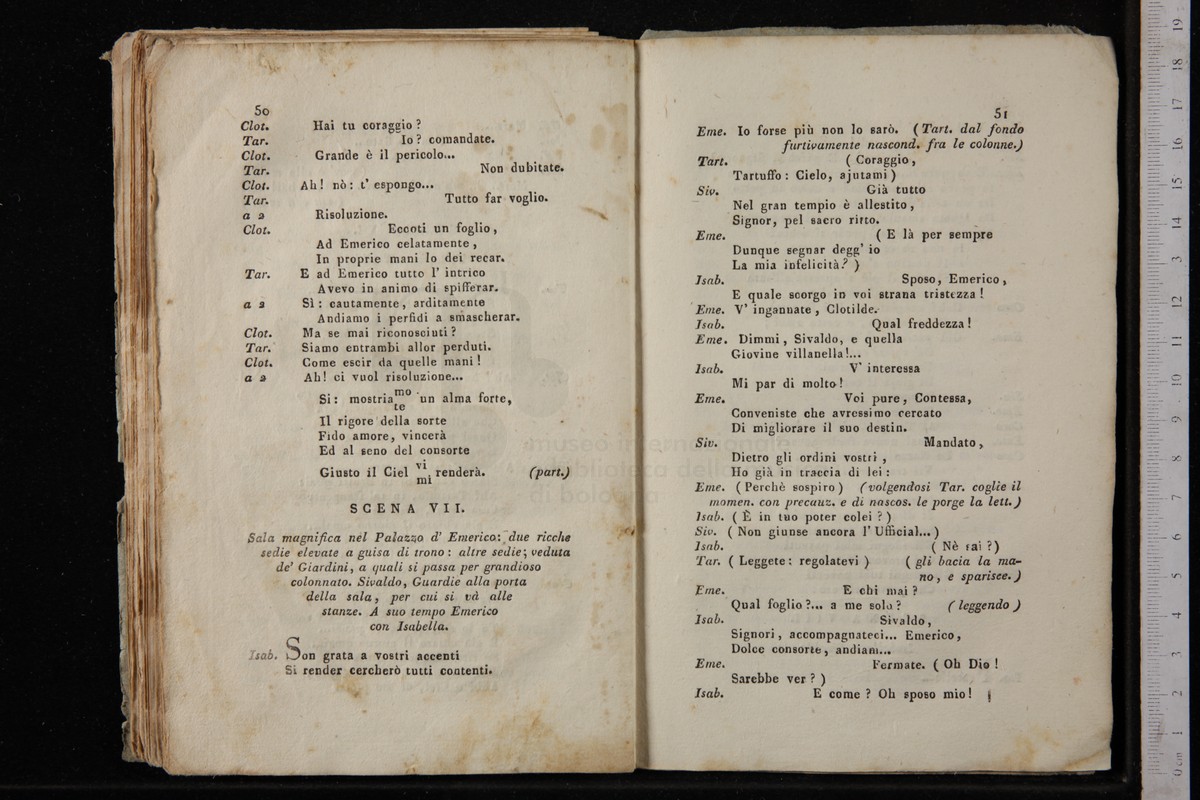 50
Clot. Hai tu coraggio ?
Tar. Io ? comandate.
Clot. Grande è il pericolo...
Tar. Non dubitate.
Clot. Ah! nò : t' espongo...
Tar. Tutto far voglio.
a 2 Risoluzione.
Clot. Eccoti un foglio,
Ad Emerico celatamente,
In proprie mani lo dei recar.
Tar. E ad Emerico tutto l' intrico
Avevo in animo di spifferar.
a 2 Sì : cautamente, arditamente
Andiamo i perfidi a smascherar.
Clot. Ma se mai riconosciuti ?
Tar. Siamo entrambi allor perduti.
Clot. Come escir da quelle mani !
a 2 Ah! ci vuol risoluzione...
Si : mostria mo te un alma forte,
Il rigore della sorte
Fido amore, vincerà
Ed al seno del consorte
Giusto il Ciel vi mi renderà. (part.)
SCENA VII.
Sala magnifica nel Palazzo d' Emerico: due ricche
sedie elevate a guisa di trono : altre sedie; veduta
de' Giardini, a quali si passa per grandioso
colonnato. Sivaldo, Guardie alla porta
della sala, per cui si và alle
stanze. A suo tempo Emerico
con Isabella.
Isab. Son grata a vostri accenti
Si render cercherò tutti contenti.
51
Eme. Io forse più non lo sarò. (Tart. dal fondo
furtivamente nascond. fra le colonne.)
Tart. ( Coraggio,
Tartuffo : Cielo, ajutami )
Siv. Già tutto
Nel gran tempio è allestito,
Signor, pel sacro rirto.
Eme. ( E là per sempre
Dunque segnar degg' io
La mia infelicità? )
Isab. Sposo, Emerico,
E quale scorgo in voi strana tristezza !
Eme. V' ingannate, Clotilde.
Isab. Qual freddezza !
Eme. Dimmi, Sivaldo, e quella
Giovine villanella!...
Isab. V' interessa
Mi par di molto !
Eme. Voi pure, Contessa,
Conveniste che avressimo cercato
Di migliorare il suo destin.
Siv. Mandato,
Dietro gli ordini vostri,
Ho già in traccia di lei :
Eme. ( Perchè sospiro ) (volgendosi Tar. coglie il
momen. con precauz. e di nascos. le porge la lett.)
Isab. ( È in tuo poter colei ? )
Siv. ( Non giunse ancora l' Ufficial... )
Isab. ( Nè sai ?)
Tar. ( Leggete : regolatevi ) ( gli bacia la ma-
no, e sparisee.)
Eme. E chi mai ?
Qual foglio ?... a me solo ? ( leggendo )
Isab. Sivaldo,
Signori, accompagnateci... Emerico,
Dolce consorte, andiam...
Eme. Fermate. ( Oh Dio !
Sarebbe ver ? )
Isab. E come ? Oh sposo mio!